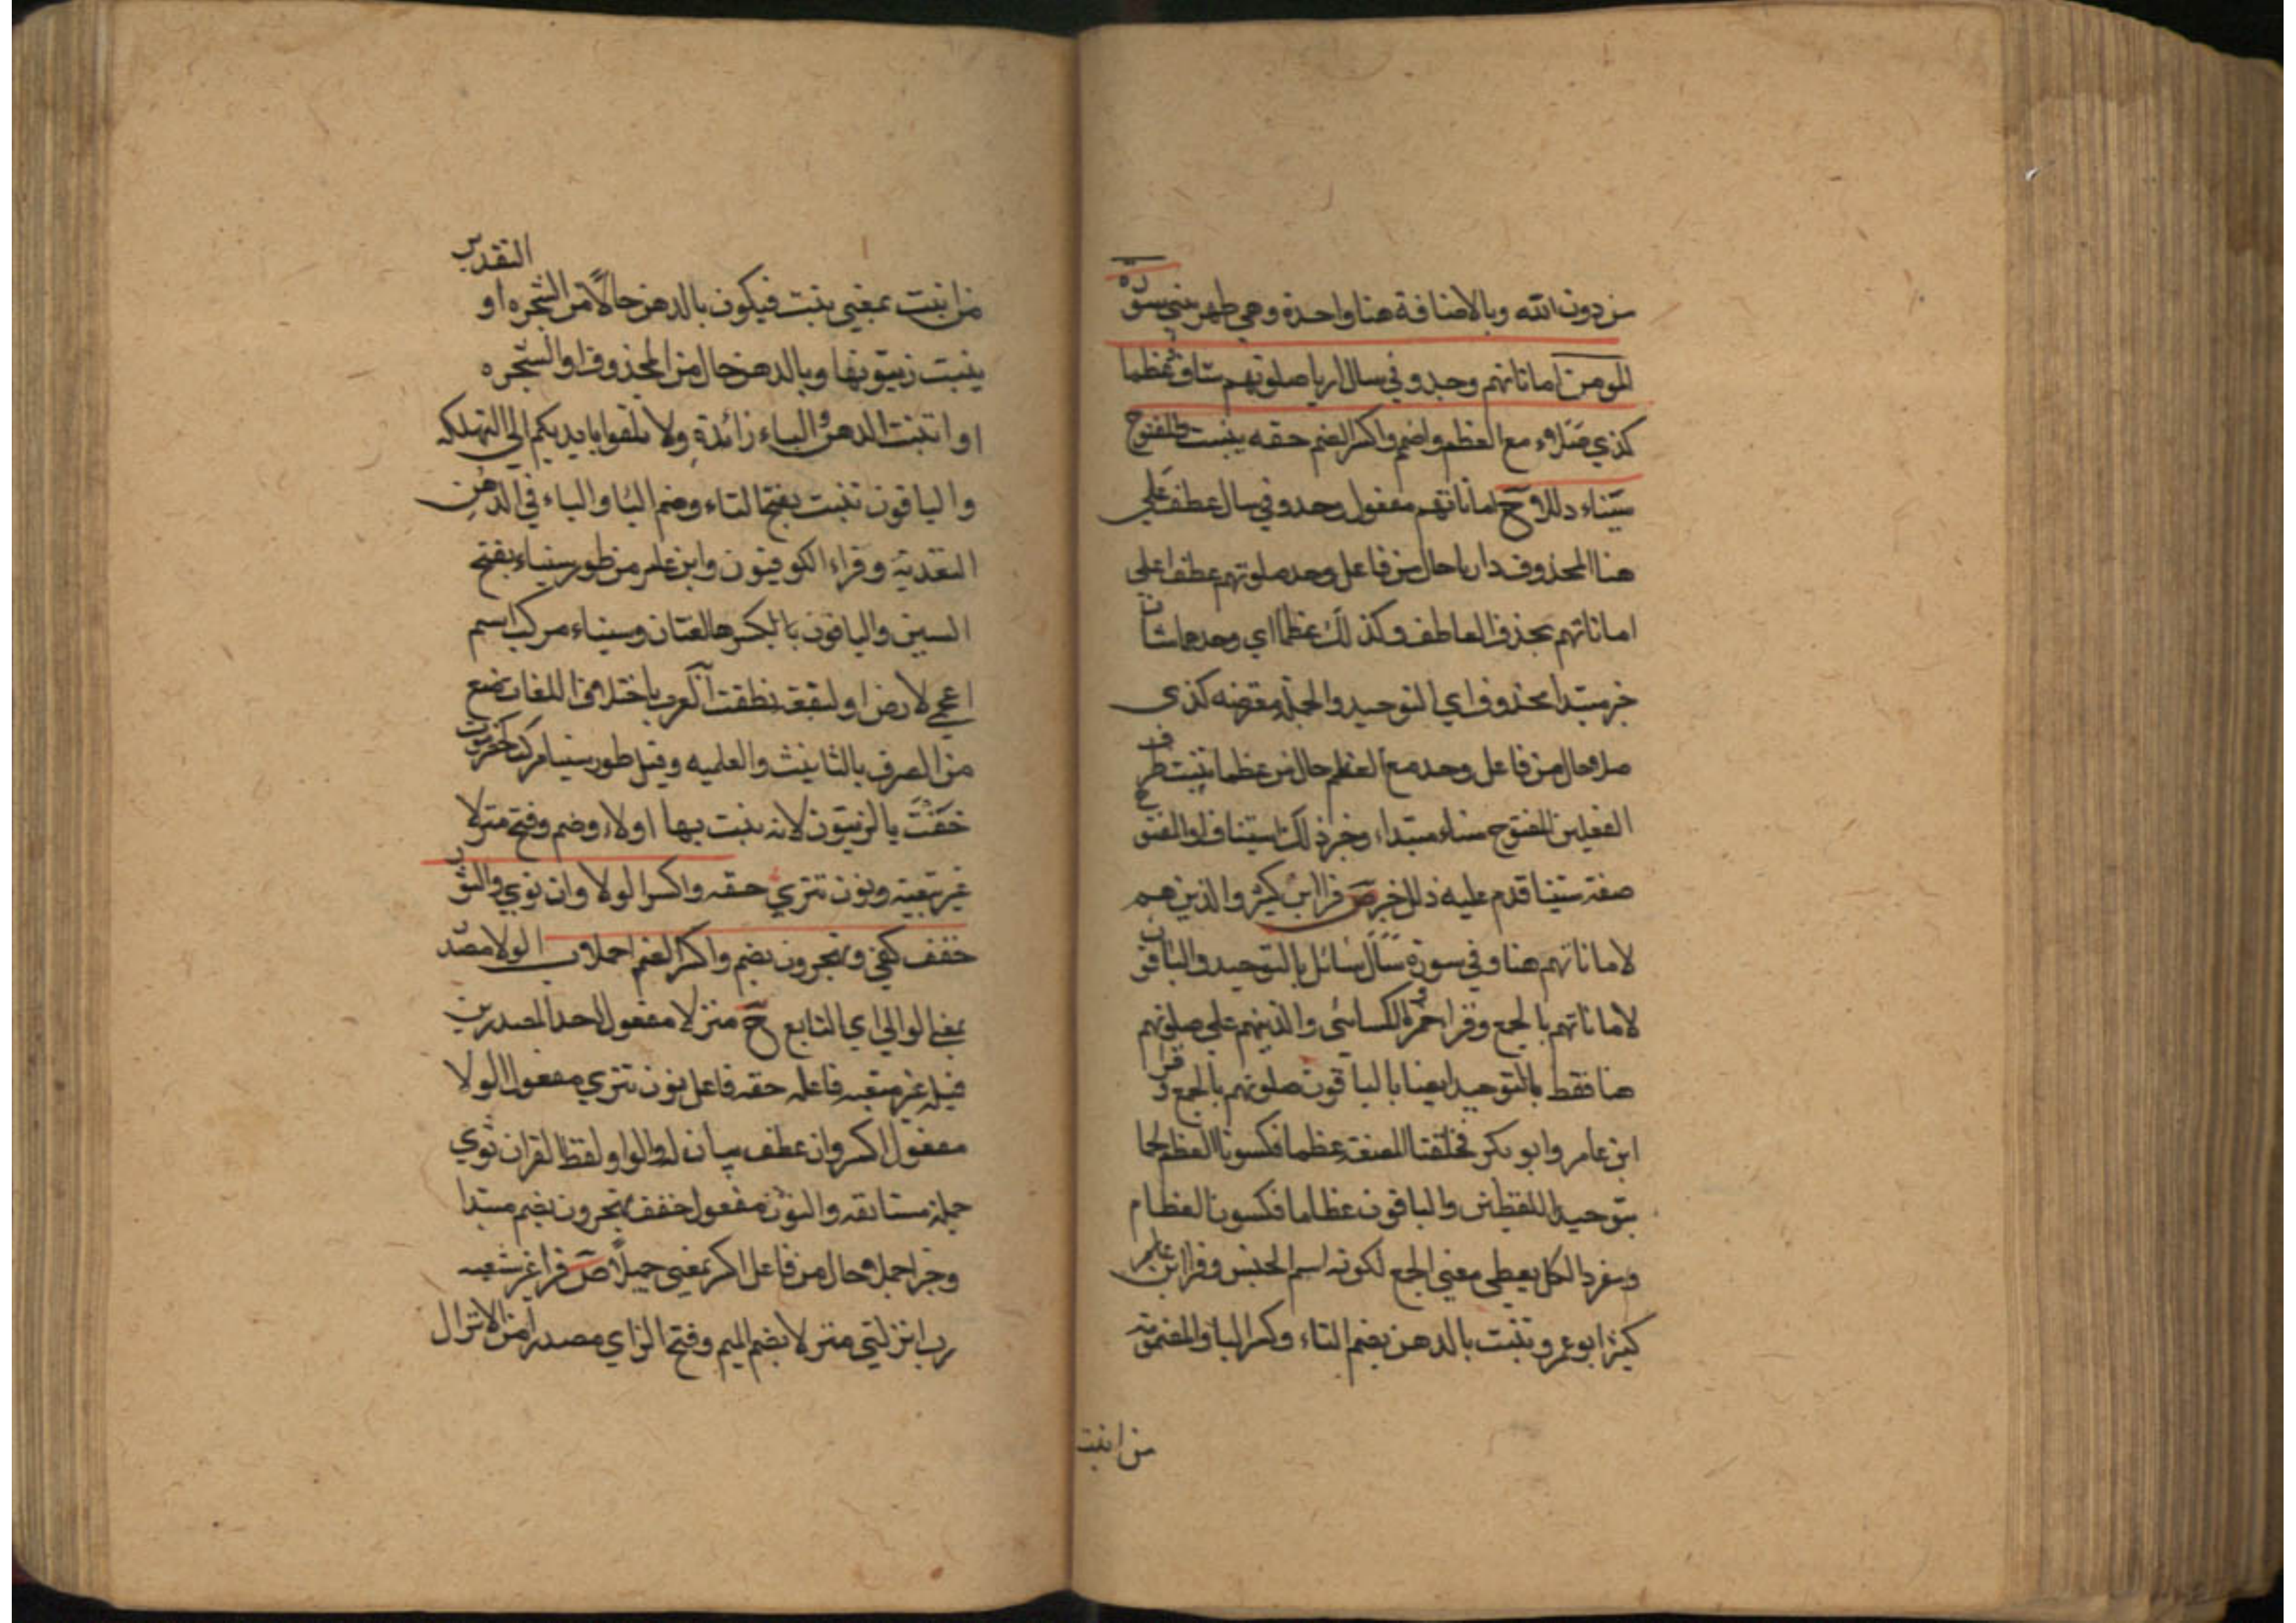 من دون الله وبالاضافة هنا واحدة وهي طهر بيتي سورة
المومن اماناتهم وحد وفي سال اريا صلوتهم شاو عظما
كذي صلاء مع العظم واضم واكسر الضم حقه ينبت والمفتوح
سيناء دللاح اماناتهم مفعول وحد وفي سال عطف علي
هنا المحذوف داريا حال من فاعل وحد صلوتهم عطف علي
اماناتهم بحذف العاطف وكذلك عظما اي وحدهما شاف
خبر مبتدا محذوف اي التوحيد والجملة معترضه كذي
صلا حال من فاعل وحد مع العظم حال من عظما تنبت ظرف
الفعلين المفتوح سيناء مبتداء وخبر ذلك استينافا والمفتوح
صفة سينا قدم عليه ذلل خبر ص قرا ابن كثير والذين هم
لاماناتهم هنا وفي سورة سال سائل بالتوحيد والباقون
لاماناتهم بالجمع وقرا حمزة والكسائي والذينهم علي صلوتهم
هنا فقط بالتوحيد ايضا بالباقون صلوتهم بالجمع وقرا
ابن عامر وابو بكر فخلقنا المضغة عظما فكسونا العظم لحما
بتوحيد اللفظين والباقون عظاما فكسونا العظام
ومفرد الكل يعطي معني الجمع لكونه اسم الجنس وقرا ابن عامر
كثير ابو عمرو تنبت بالدهن بضم التاء وكسر الباء والمضمومة
من انبت
التقدير
من انبت بمعني ينبت فيكون بالدهن حالا من الشجره او
ينبت زيتونها وبالدهن حال من المحذوف او الشجره
او اتنبت الدهن والباء زائدة ولا تلقوا بايديكم الي التهلكه
والباقون تنبت بفتح التاء وضم البا والباء في الدهن
التعدية وقراء الكوفيون وابن عامر من طور سيناء بفتح
السين والباقون بالكسر هالغتان وسيناء مركب اسم
اعجمي لارض او لبقعة نطقت العرب باختلاف اللغات منع
من الصرف بالتانيث والعلميه وقيل طور سينا مركب كحضرموت
خفت بالزيتون لانه ينبت بها اولا وضم وفتح منزلا
غير شعبة ونون تتري حقه واكسر الولا وان نوي والنون
خفف كفي وتهجرون بضم واكسر الضم اجملا ب الولا مصدر
بمعني الوالي اي التابع ح منزلا مفعول احد المصدرين
قبله غير شعبه فاعله حقه فاعل نون تتري مفعول الولا
مفعول اكسر وان عطف بيان له والواو لفظ القران نوي
جملة مستانفه والنون مفعول خفف تهجرون بضم مبتدا
وخبر اجملا حال من فاعل اكسر بمعني جميلا ص قرا غير شعبه
رب انزلني منزلا بضم الميم وفتح الزاي مصدرا من الانزال